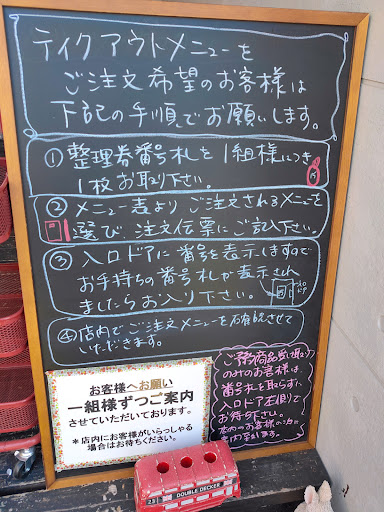 テイクアウトメニューを
ご注文希望のお客様は
下記の手順でお願いします。
①整理券番号札を1組様につき
1枚お取り下さい。
②メニュー表よりご注文されるメニューを
選び、注文伝票にご記入下さい。
③入口ドアに番号を表示しますので
お手持ちの番号札が表示され
ましたらお入り下さい。
④店内でご注文メニューを確認させて
いただきます。
お客様へお願い
一組様ずつご案内
させていただいております。
*店内にお客様がいらっしゃる
場合はお待ちください。
ご予約商品受け取り
のみのお客様は、
番号札を取らずに
入口ドア右側で
お待ち下さい。
店内のお客様の次に
ご案内します。
DOUBLE DECKER